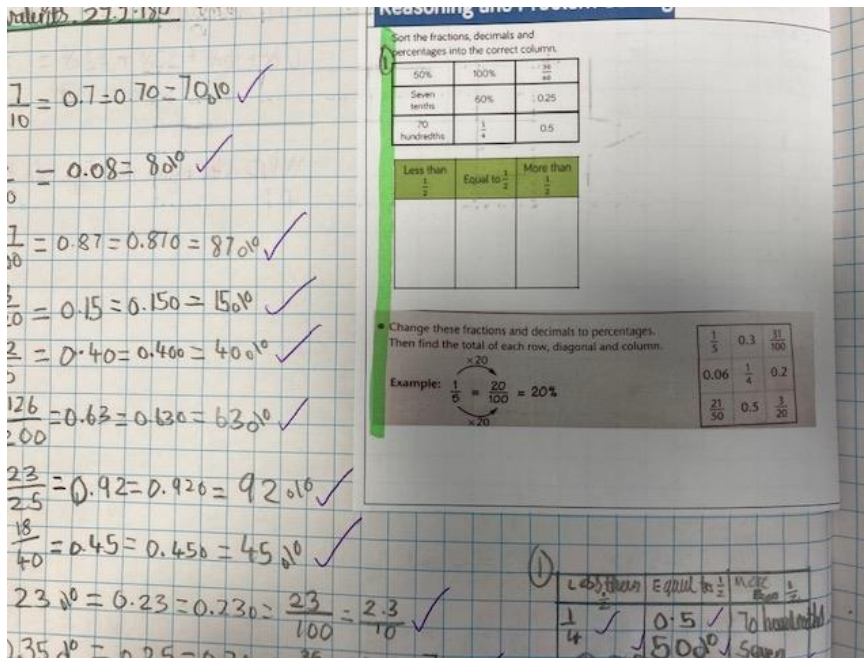 7/10 = 0.7=0.70=70%
= 0.08= 8%
= 0.87=0.870 = 87%
= 0.15=0.150= 15%
= 0.40=0.400=40%
126/200 =0.63=0.630=63%
23/25 =0.92=0.920= 92%
18/40 =0.45= 0.450=45%
23%= 0.23=0.230= 23/100 = 2.3/10
Sort the fractions, decimals and
percentages into the correct column.
1
50% 100%
Seven tenths 60% 0.25
70 hundredths 1/4 0.5
Less than 1/2 Equal to 1/2 More than 1/2
• Change these fractions and decimals to percentages.
Then find the total of each row, diagonal and column.
×20
Example: 1/5 = 20/100 = 20%
×20
1/5 0.3 31/100
0.06 1/4 0.2
21/50 0.5 3/20
1
Less than 1/2 Equal to 1/2 More than 1/2
1/4 0.5 70 hundredths
50% Seven